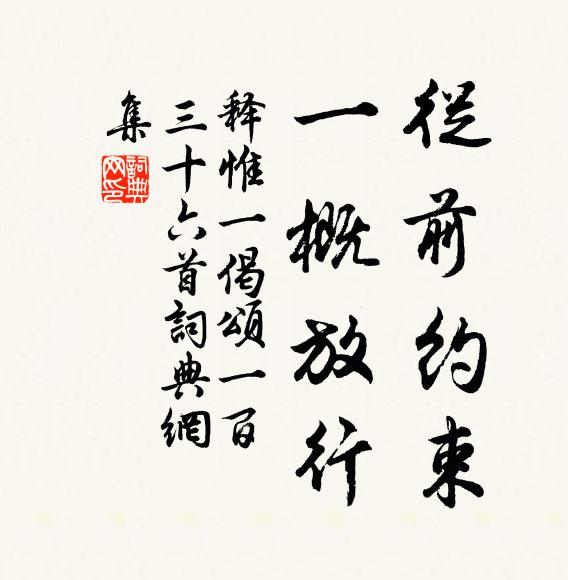 從前約束
一概放行
释惟一偈頌一百
三十六首詞典網
集
詞典网印